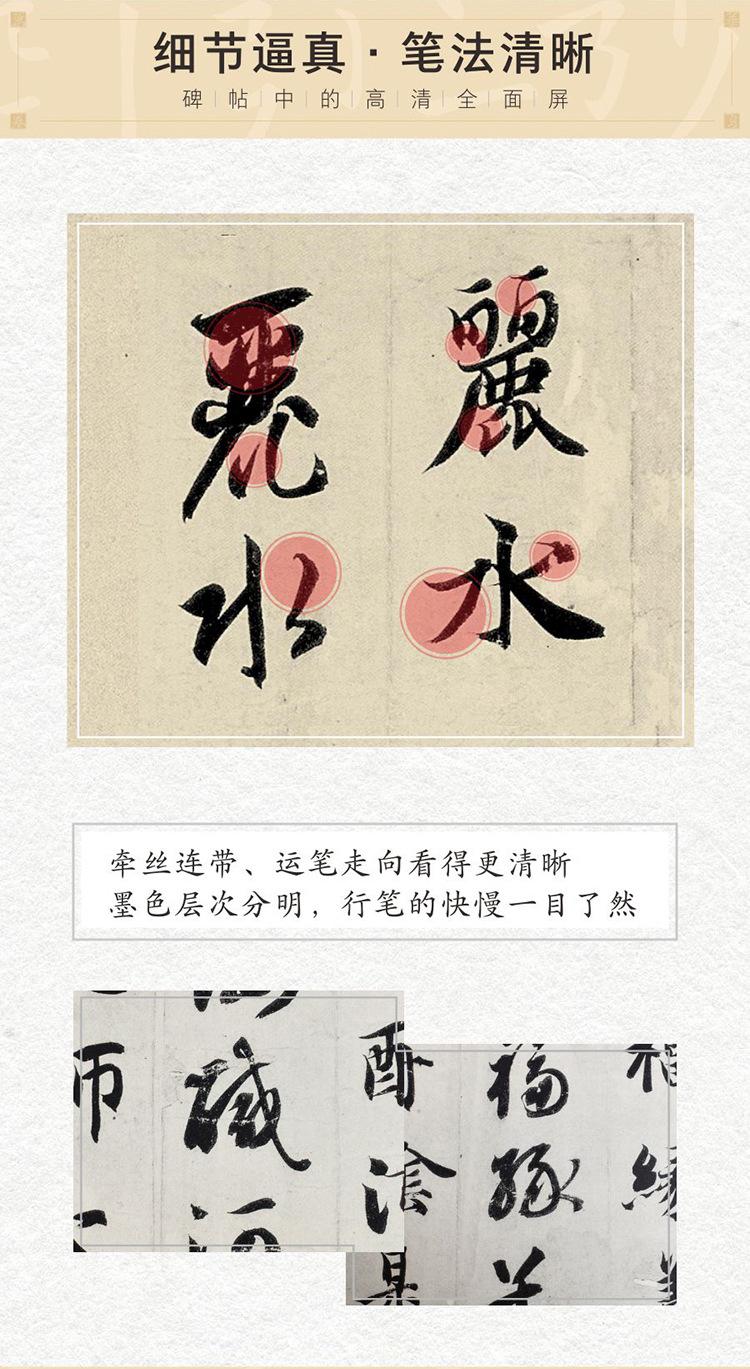 细节逼真·笔法清晰
碑帖中的高清全面屏
麗水
麗水
牵丝连带、运笔走向看得更清晰
墨色层次分明，行笔的快慢一目了然
師
鹹河
福緣善